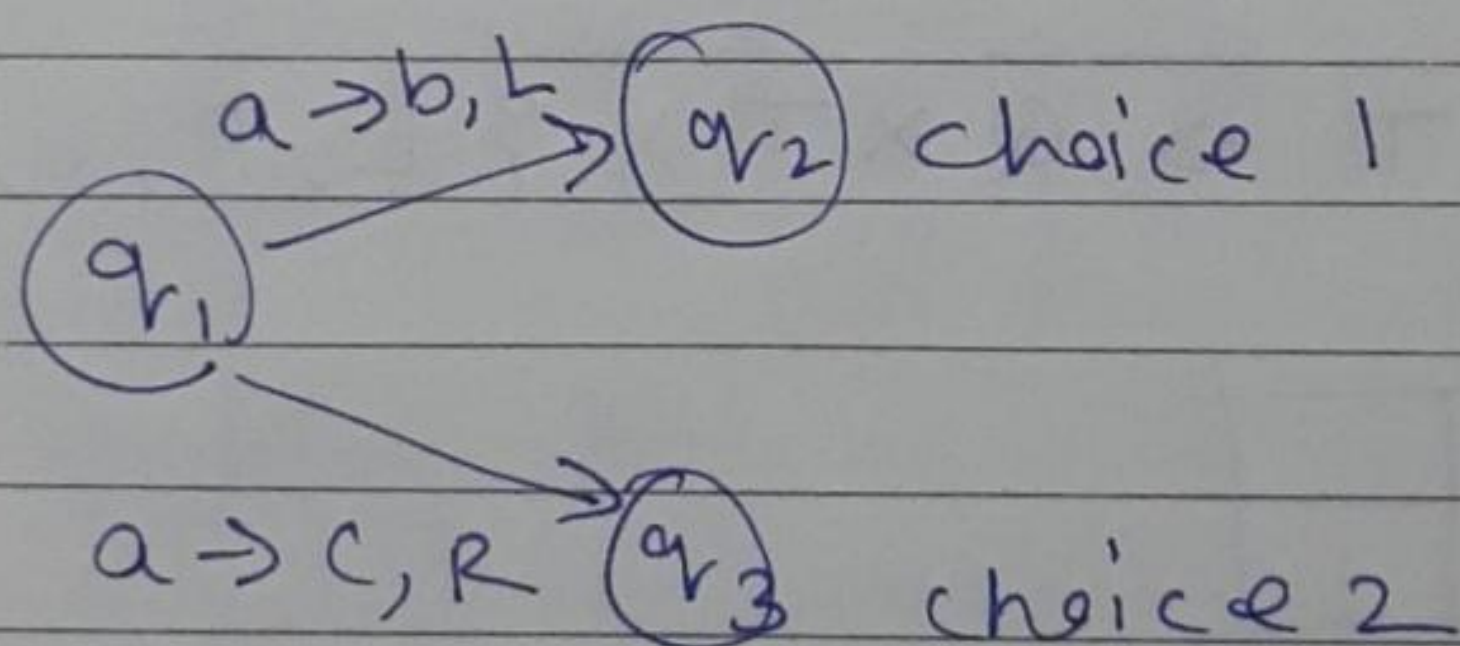 a → b, L
q2 choice 1
q1
a → c, R q3 choice 2